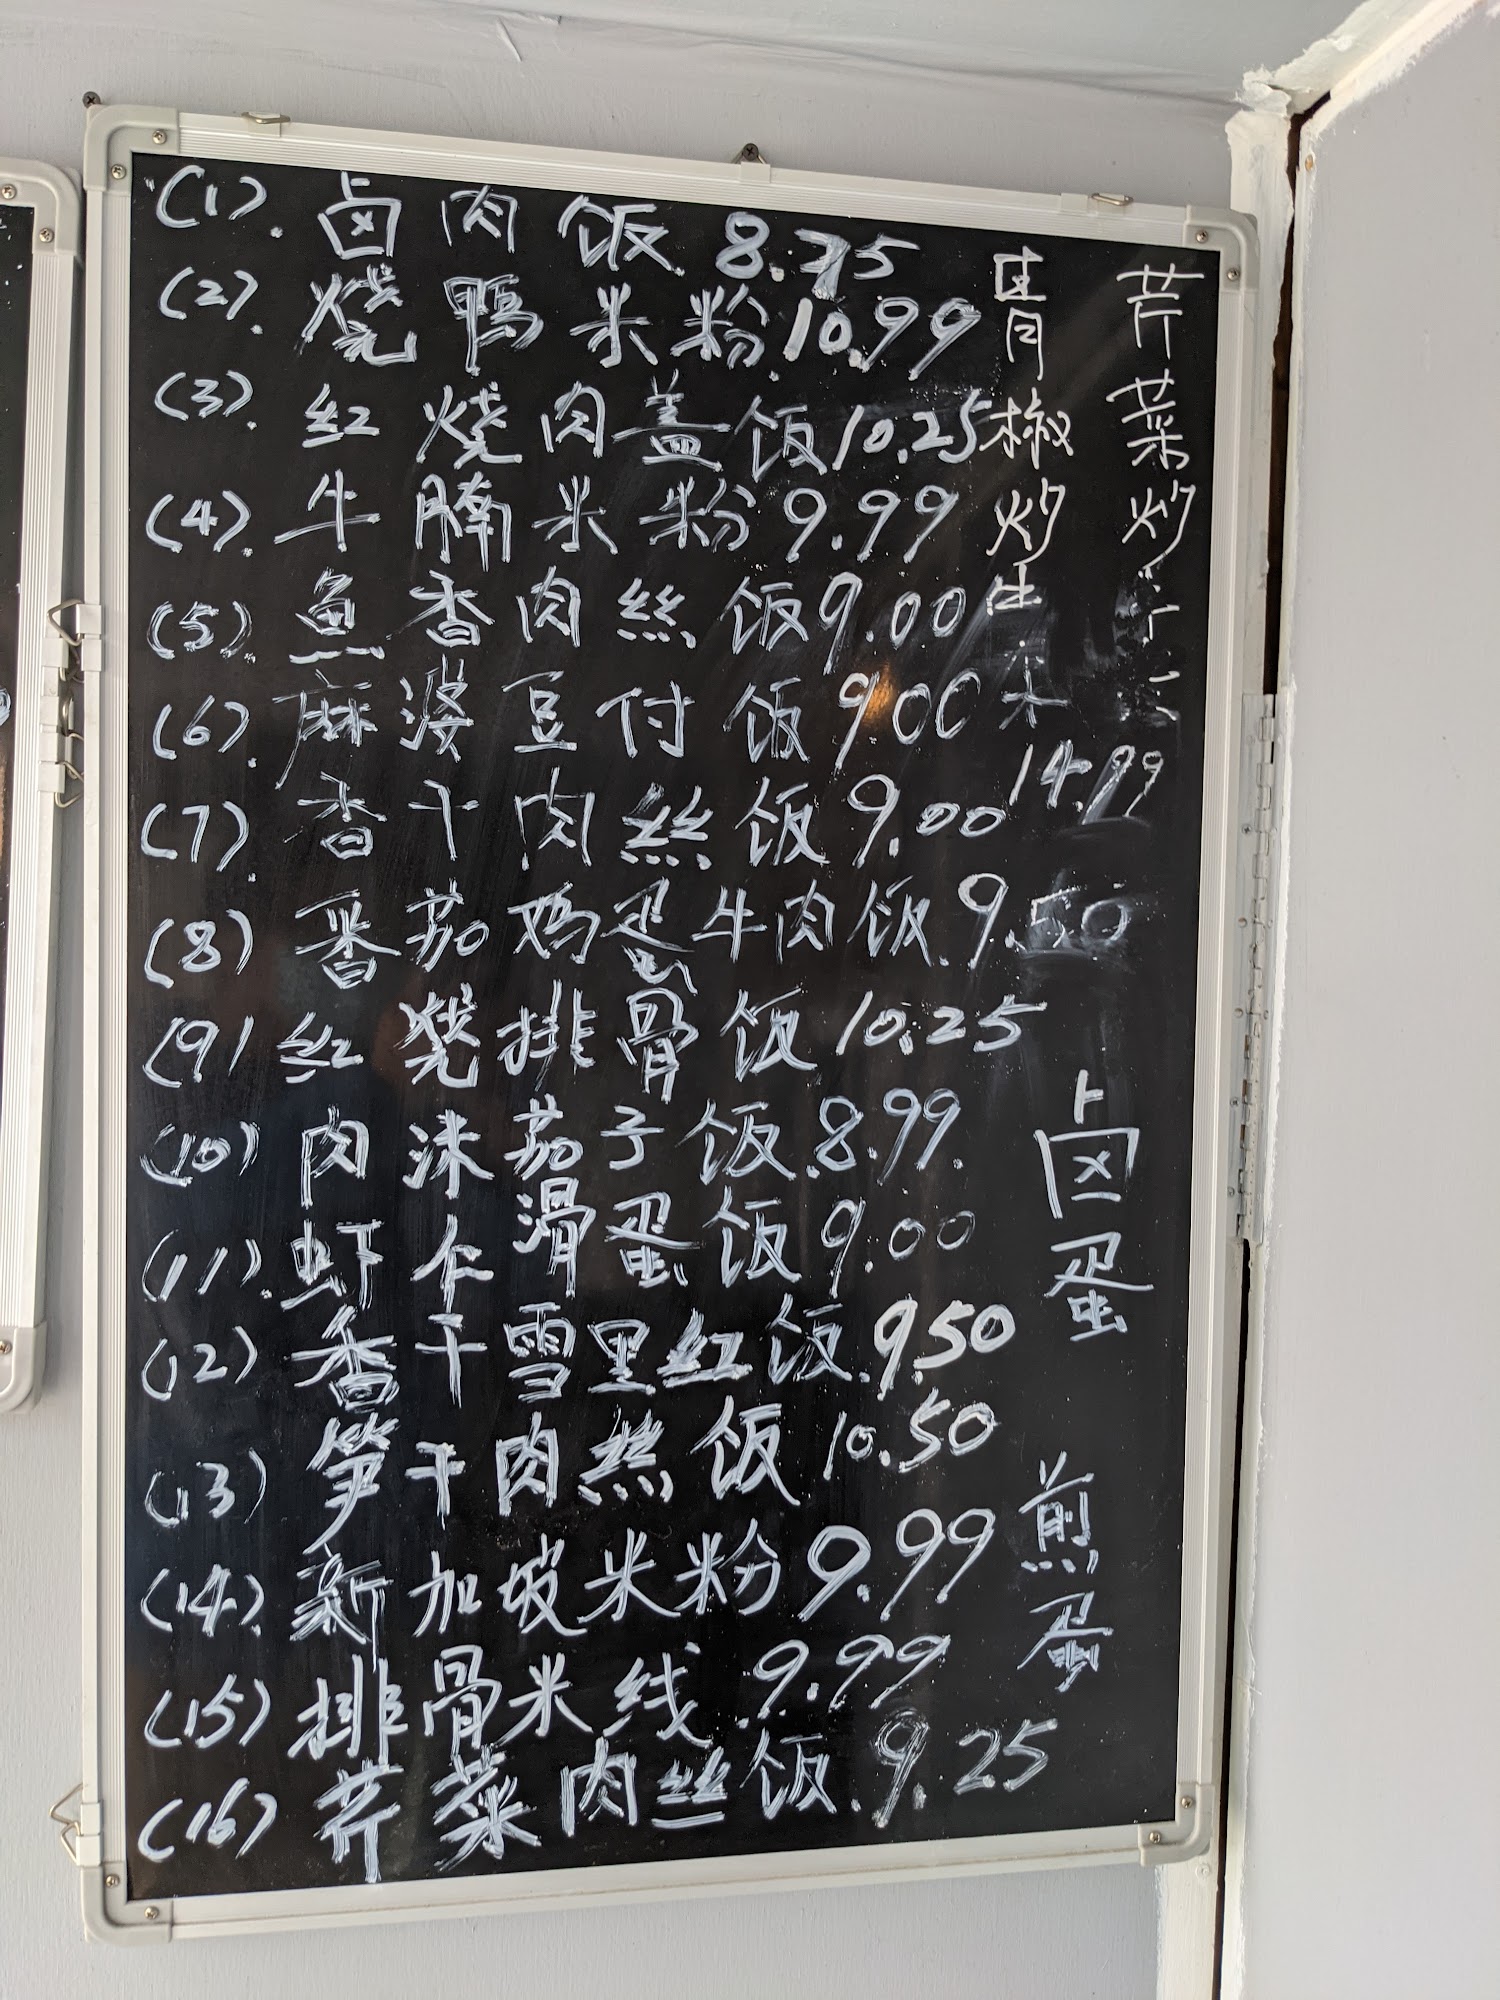 (1). 卤肉饭 8.75
(2). 烧鸭米粉.10.99
(3). 红烧肉盖饭10.25
(4). 牛腩米粉9.99
(5). 鱼香肉丝饭9.00
(6). 麻婆豆付饭900
(7). 香干肉丝饭9.00
(8) 番茄鸡蛋牛肉饭.9.50
(9) 红烧排骨饭10.25
(10) 肉沫茄子饭.8.99.
(11). 虾仁滑蛋饭9.00
(12) 香干雪里红饭.9.50
(13) 笋干肉丝饭10.50
(14). 新加坡米粉9.99
(15) 排骨米线.9.99
(16) 芹菜肉丝饭.9.25
芹菜炒
青椒炒
14.99
卤蛋
煎蛋